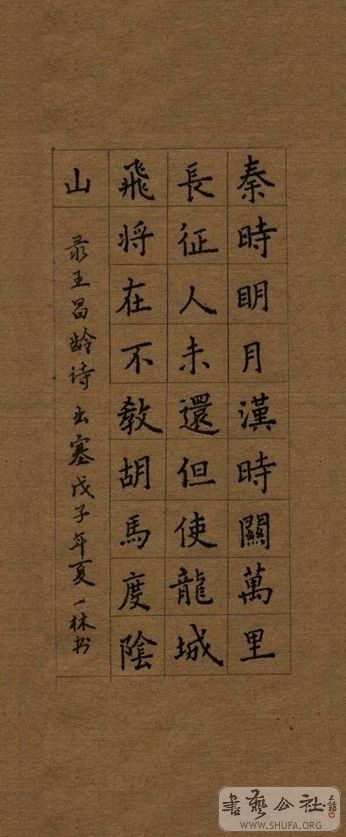 秦時明月漢時關萬里
長征人未還但使龍城
飛将在不敎胡馬度陰
山
录王昌龄诗出塞戊子年夏一林书
書藝公社
WWW.SHUFA.ORG